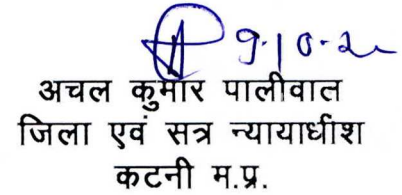 9.10.2
अचल कुमार पालीवात
जिला एवं सत्र न्यायाधीश
कटनी म.प्र.